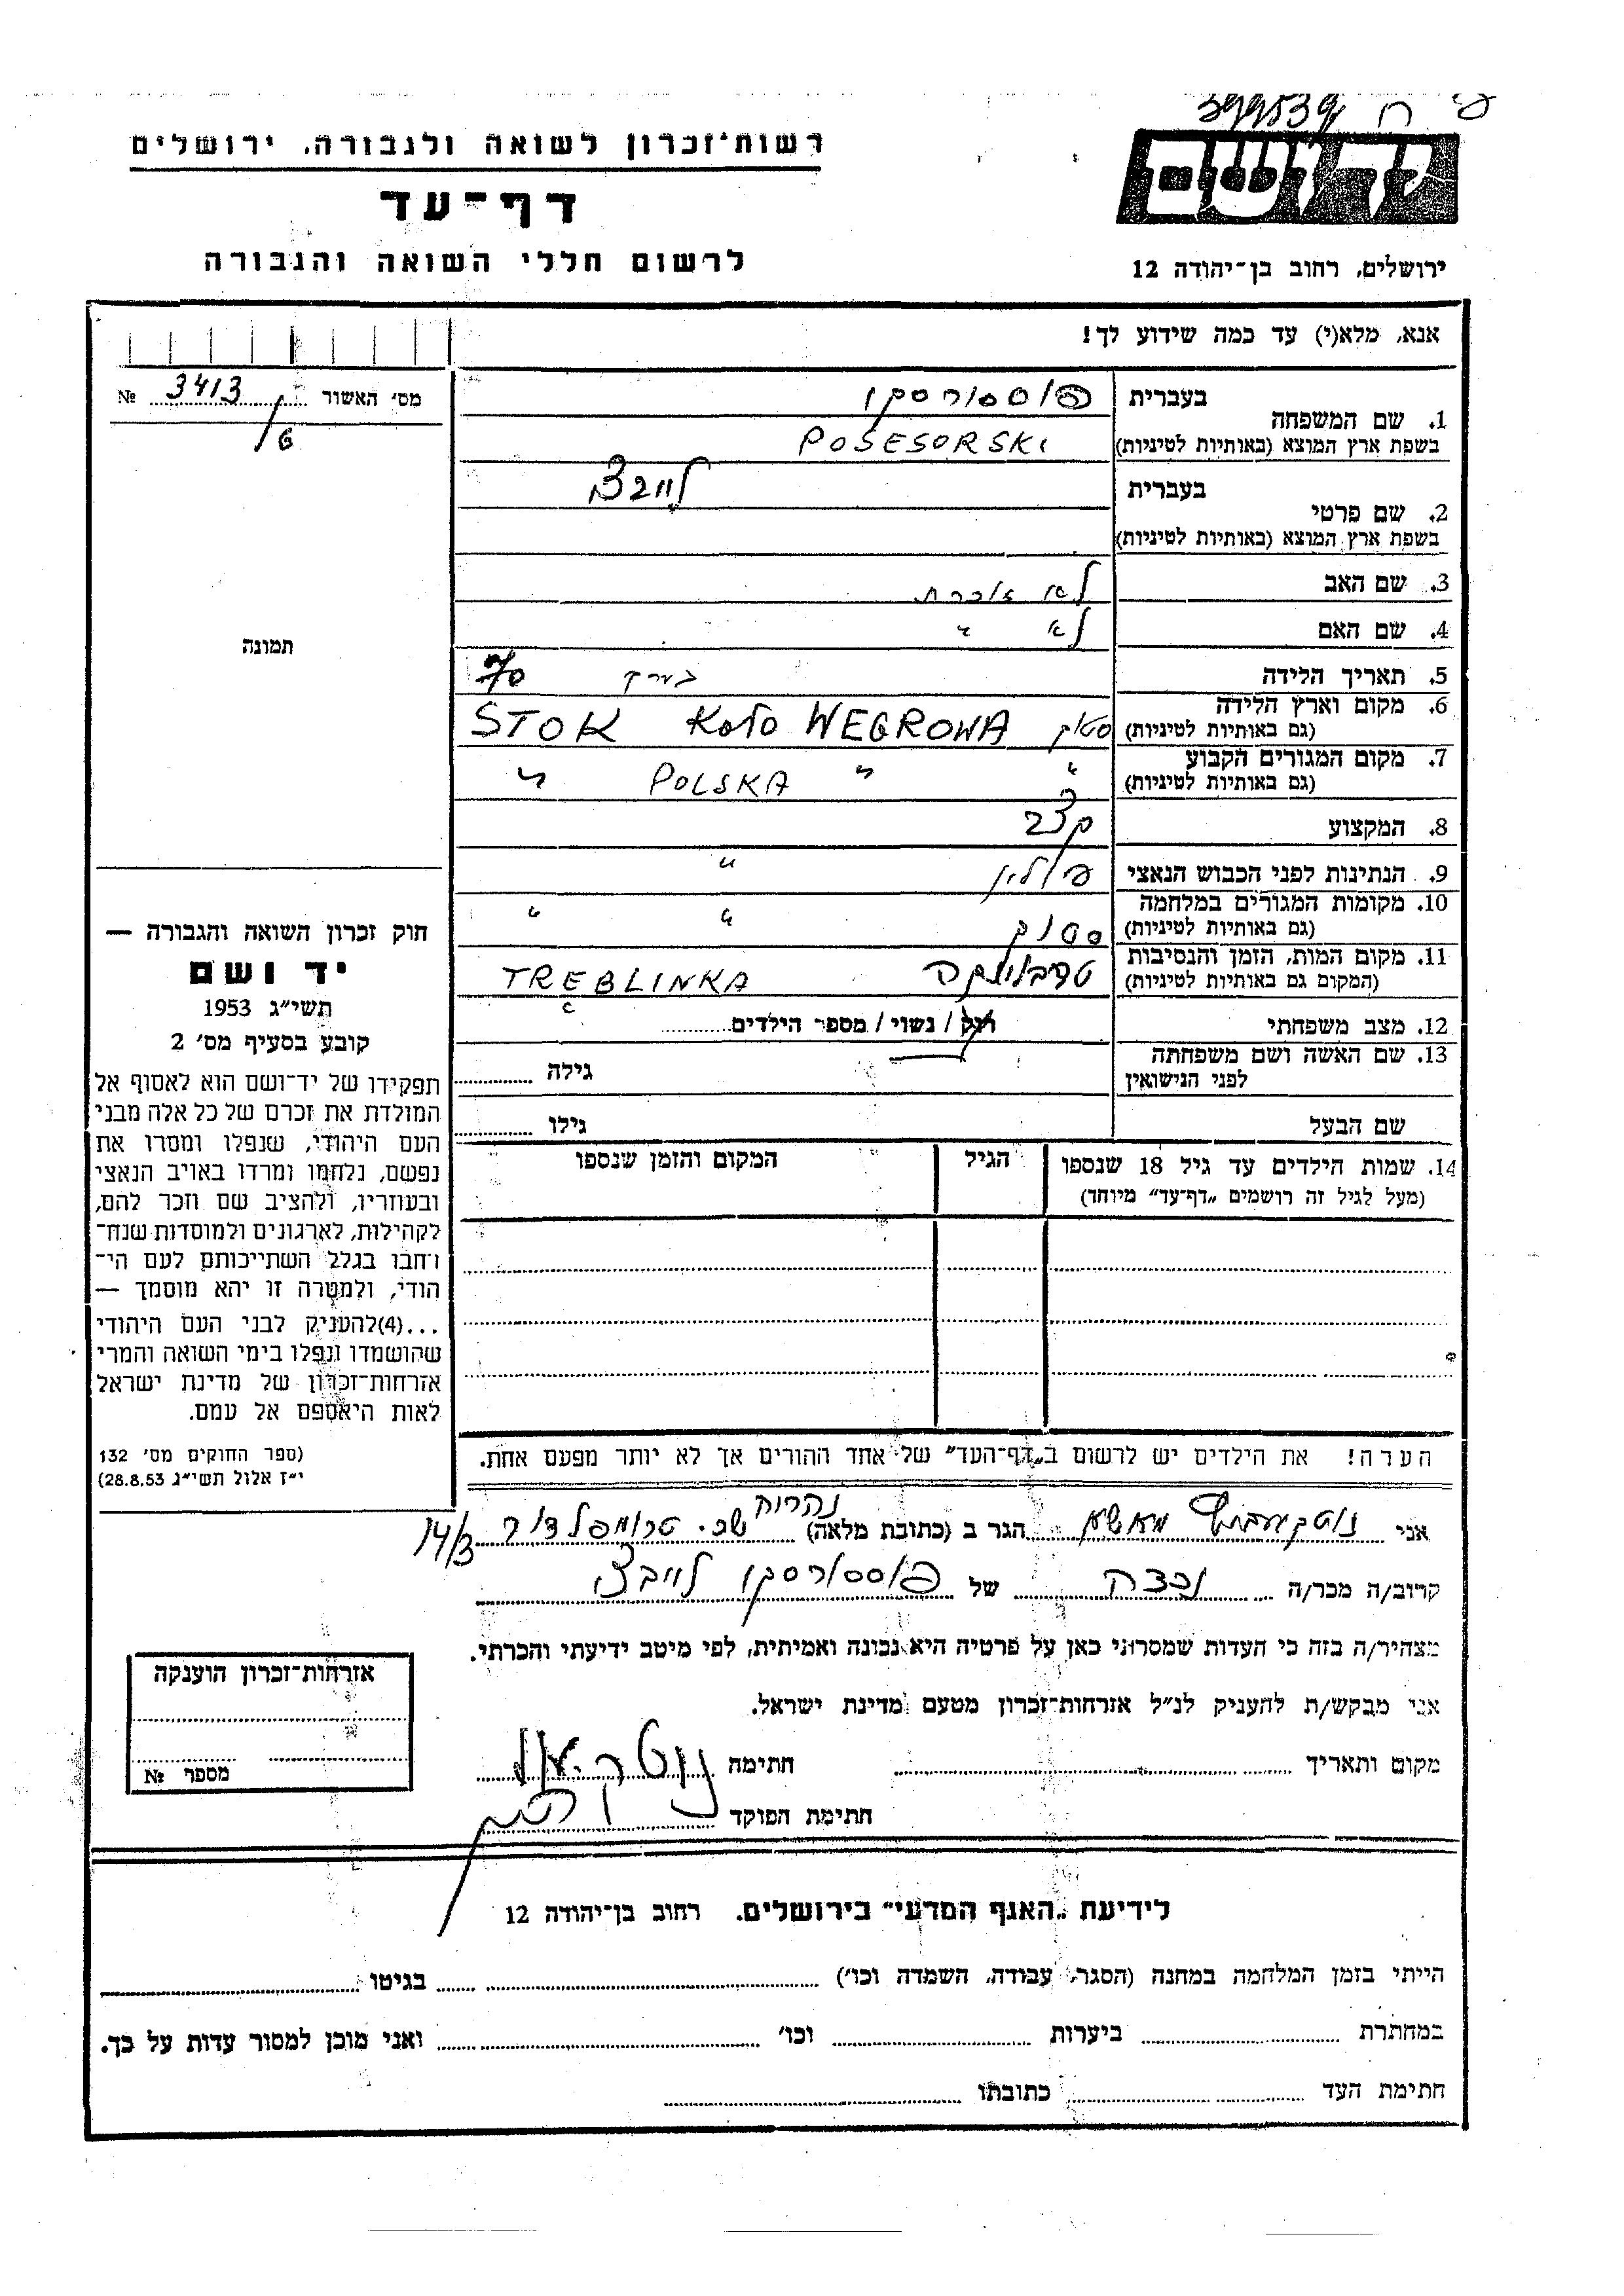 399539
רשות־זכרון לשואה ולגבורה, ירושלים
יד ושם
דף־עד
לרשום חללי השואה והגבורה
ירושלים, רחוב בן־יהודה 12
אנא, מלא(י) עד כמה שידוע לך!
מס׳ האשור 3413 №
6/
1. שם המשפחה
בעברית פוססורסקי
בשפת ארץ המוצא (באותיות לטיניות) POSESORSKI
2. שם פרטי
בעברית לייבצ
בשפת ארץ המוצא (באותיות לטיניות)
3. שם האב לא זוכרת
4. שם האם לא "
תמונה
5. תאריך הלידה בערך 70
6. מקום וארץ הלידה
(גם באותיות לטיניות) סטוק STOK KOŁO WEGROWA
7. מקום המגורים הקבוע
(גם באותיות לטיניות) " " POLSKA "
8. המקצוע קצב
9. הנתינות לפני הכבוש הנאצי פולין "
10. מקומות המגורים במלחמה
(גם באותיות לטיניות) סטוק " "
11. מקום המות, הזמן והנסיבות
(המקום גם באותיות לטיניות) טרבלינקה TREBLINKA
12. מצב משפחתי רוק / נשוי / מספר הילדים
13. שם האשה ושם משפחתה
לפני הנישואין
גילה
שם הבעל גילו
14. שמות הילדים עד גיל 18 שנספו
(מעל לגיל זה רושמים „דף־עד״ מיוחד)
הגיל
המקום והזמן שנספו
חוק זכרון השואה והגבורה —
יד ושם
תשי״ג 1953
קובע בסעיף מס׳ 2
תפקידו של יד־ושם הוא לאסוף אל
המולדת את זכרם של כל אלה מבני
העם היהודי, שנפלו ומסרו את
נפשם, נלחמו ומרדו באויב הנאצי
ובעוזריו, ולהציב שם וזכר להם,
לקהילות, לארגונים ולמוסדות שנח־
רחבו בגלל השתייכותם לעם הי־
הודי, ולמטרה זו יהא מוסמך —
...(4)להעניק לבני העם היהודי
שהושמדו ונפלו בימי השואה והמרי
אזרחות־זכרון של מדינת ישראל
לאות היאספם אל עמם.
(ספר החוקים מס׳ 132
י״ז אלול תשי״ג 28.8.53)
הערה! את הילדים יש לרשום ב„דף־העד״ של אחד ההורים אך לא יותר מפעם אחת.
אני הגר ב (כתובת מלאה) שכ. טרומפלדור 14/3
קרוב/ה מכר/ה נכדה של פוססורסקי לייבצ
מצהיר/ה בזה כי העדות שמסרתי כאן על פרטיה היא נכונה ואמיתית, לפי מיטב ידיעתי והכרתי.
אני מבקש/ת להעניק לנ״ל אזרחות־זכרון מטעם מדינת ישראל.
מקום ותאריך חתימה
חתימת הפוקד
אזרחות־זכרון הוענקה
מספר №
לידיעת „האגף המדעי״ בירושלים. רחוב בן־יהודה 12
הייתי בזמן המלחמה במחנה (הסגר, עבודה, השמדה וכו׳) בגיטו
במחתרת ביערות וכו׳ ואני מוכן למסור עדות על כך.
חתימת העד כתובתו